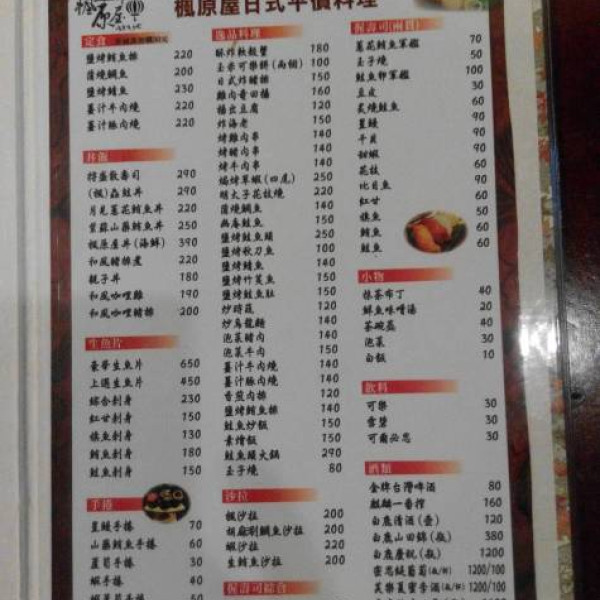 楓原屋
楓原屋日式平價料理
定食
鹽烤鮭魚排 220
蒲燒鯛魚 220
鹽烤鯖魚 230
薑汁牛肉燒 220
薑汁豚肉燒 220
丼飯
特盛散壽司 290
(楓)鱻鮭丼 290
月見蔥花鮪魚丼 220
紫蘇山藥鮪魚丼 250
楓原屋丼(海鮮) 390
和風豬排煮 220
親子丼 180
和風咖哩雞 190
和風咖哩豬排 200
生魚片
豪華生魚片 650
上選生魚片 450
綜合刺身 230
紅甘刺身 150
旗魚刺身 130
鮪魚刺身 180
鮭魚刺身 150
手捲
星鰻手捲 70
山藥鮪魚手捲 60
蘆筍手捲 30
蝦手捲 40
逸品料理
酥炸軟殼蟹 180
玉米可樂餅(兩個) 100
日式炸豬排 150
雞肉奇田揚 160
揚出豆腐 120
炸海老 150
烤雞肉串 140
烤豬肉串 140
烤牛肉串 140
焗烤草蝦(四尾) 250
明太子花枝燒 220
蒲燒鯛魚 140
幽庵鮭魚 150
鹽烤鮭魚頭 250
鹽烤秋刀魚 100
鹽烤鯖魚 140
鹽烤竹筴魚 150
鹽烤鮭魚肚 150
炒時蔬 120
炒烏龍麵 140
泡菜豬肉 140
泡菜牛肉 150
薑汁牛肉燒 140
薑汁豚肉燒 150
香煎肉排 120
鹽烤鮪魚排 140
鮭魚炒飯 150
素燴飯 150
鮭魚頭火鍋 290
玉子燒 80
沙拉
楓沙拉 200
胡麻涮鯛魚沙拉 200
蝦沙拉 200
生鮪魚沙拉 200
握壽司綜合
握壽司(兩貫)
蔥花鮪魚軍艦 70
玉子燒 50
鮭魚卵軍艦 100
豆皮 30
炙燒鮭魚 60
星鰻 90
干貝 90
甜蝦 90
花枝 60
比目魚 90
紅甘 60
旗魚 50
鮪魚 60
鮭魚 60
小物
抹茶布丁 40
鮮魚味噌湯 20
茶碗蒸 40
泡菜 30
白飯 10
飲料
可樂 30
雪碧 30
可爾必思 30
酒類
金牌台灣啤酒 80
麒麟一番搾 160
白鹿清酒(壺) 120
白鹿山田錦(瓶) 380
白鹿慶祝(瓶) 1200
1200/100
1200/100